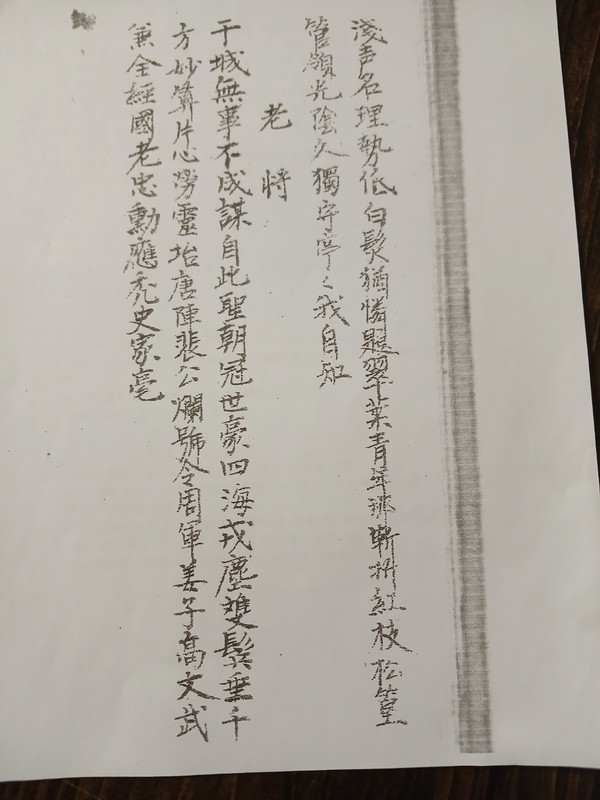 淺声名理勢低白髮猶憐題翠葉青年擲斬折紅枝松篁
管領光陰久獨守亭々我自知
老將
干城無事不成謀自此聖朝冠世豪四海戎塵雙鬂垂千
方妙算片心勞靈坮唐陣裴公爛號令周軍姜子高文武
兼全經國老忠勳應禿史家毫